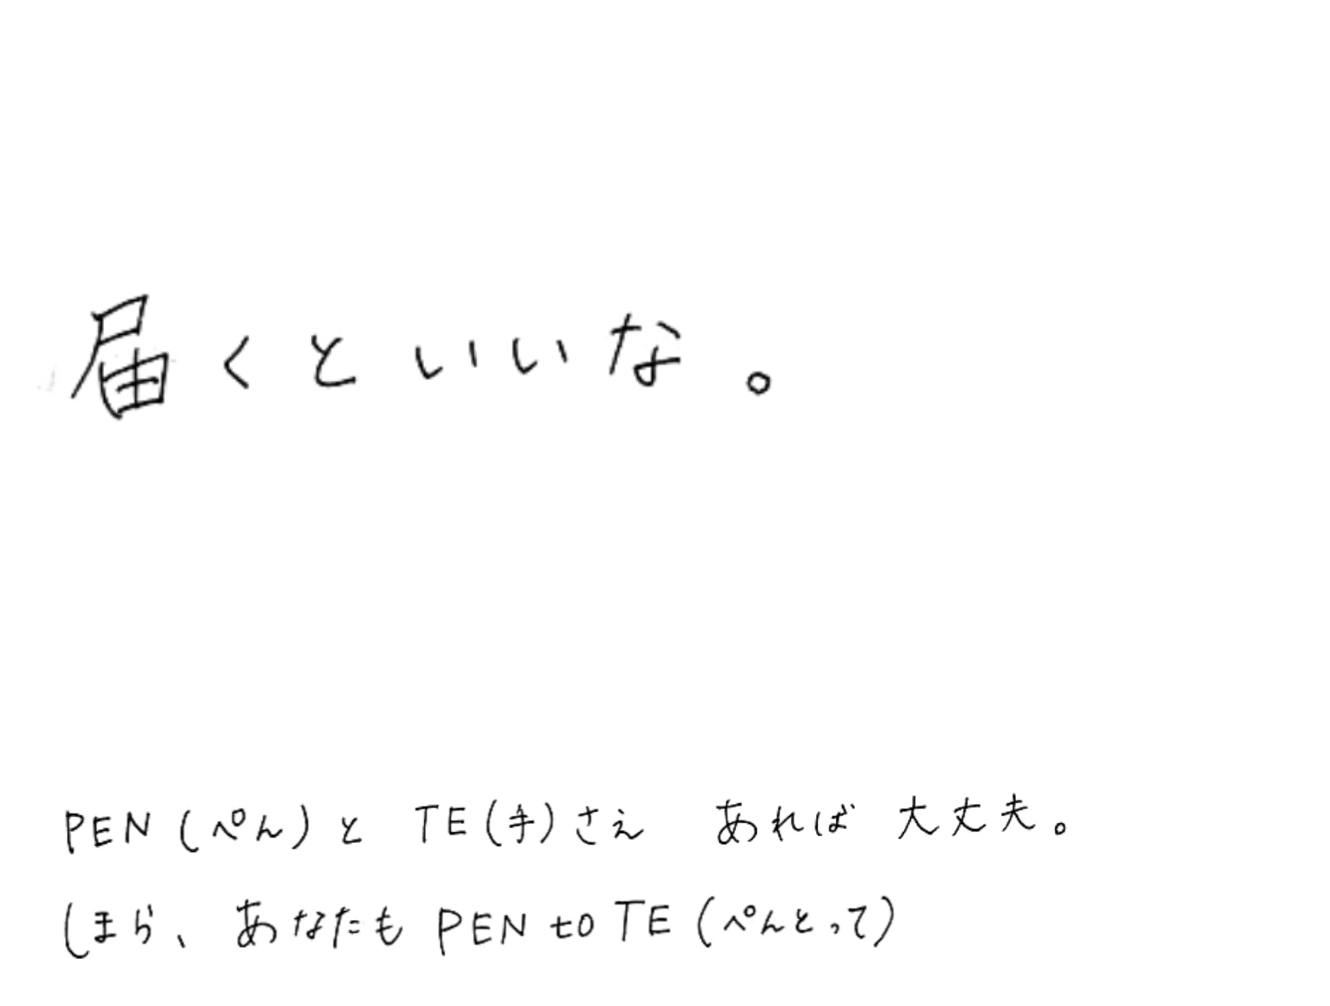 届くといいな。
PEN(ぺん)と TE(手)さえ あれば 大丈夫。
ほら、あなたも PEN to TE (ぺんとって)